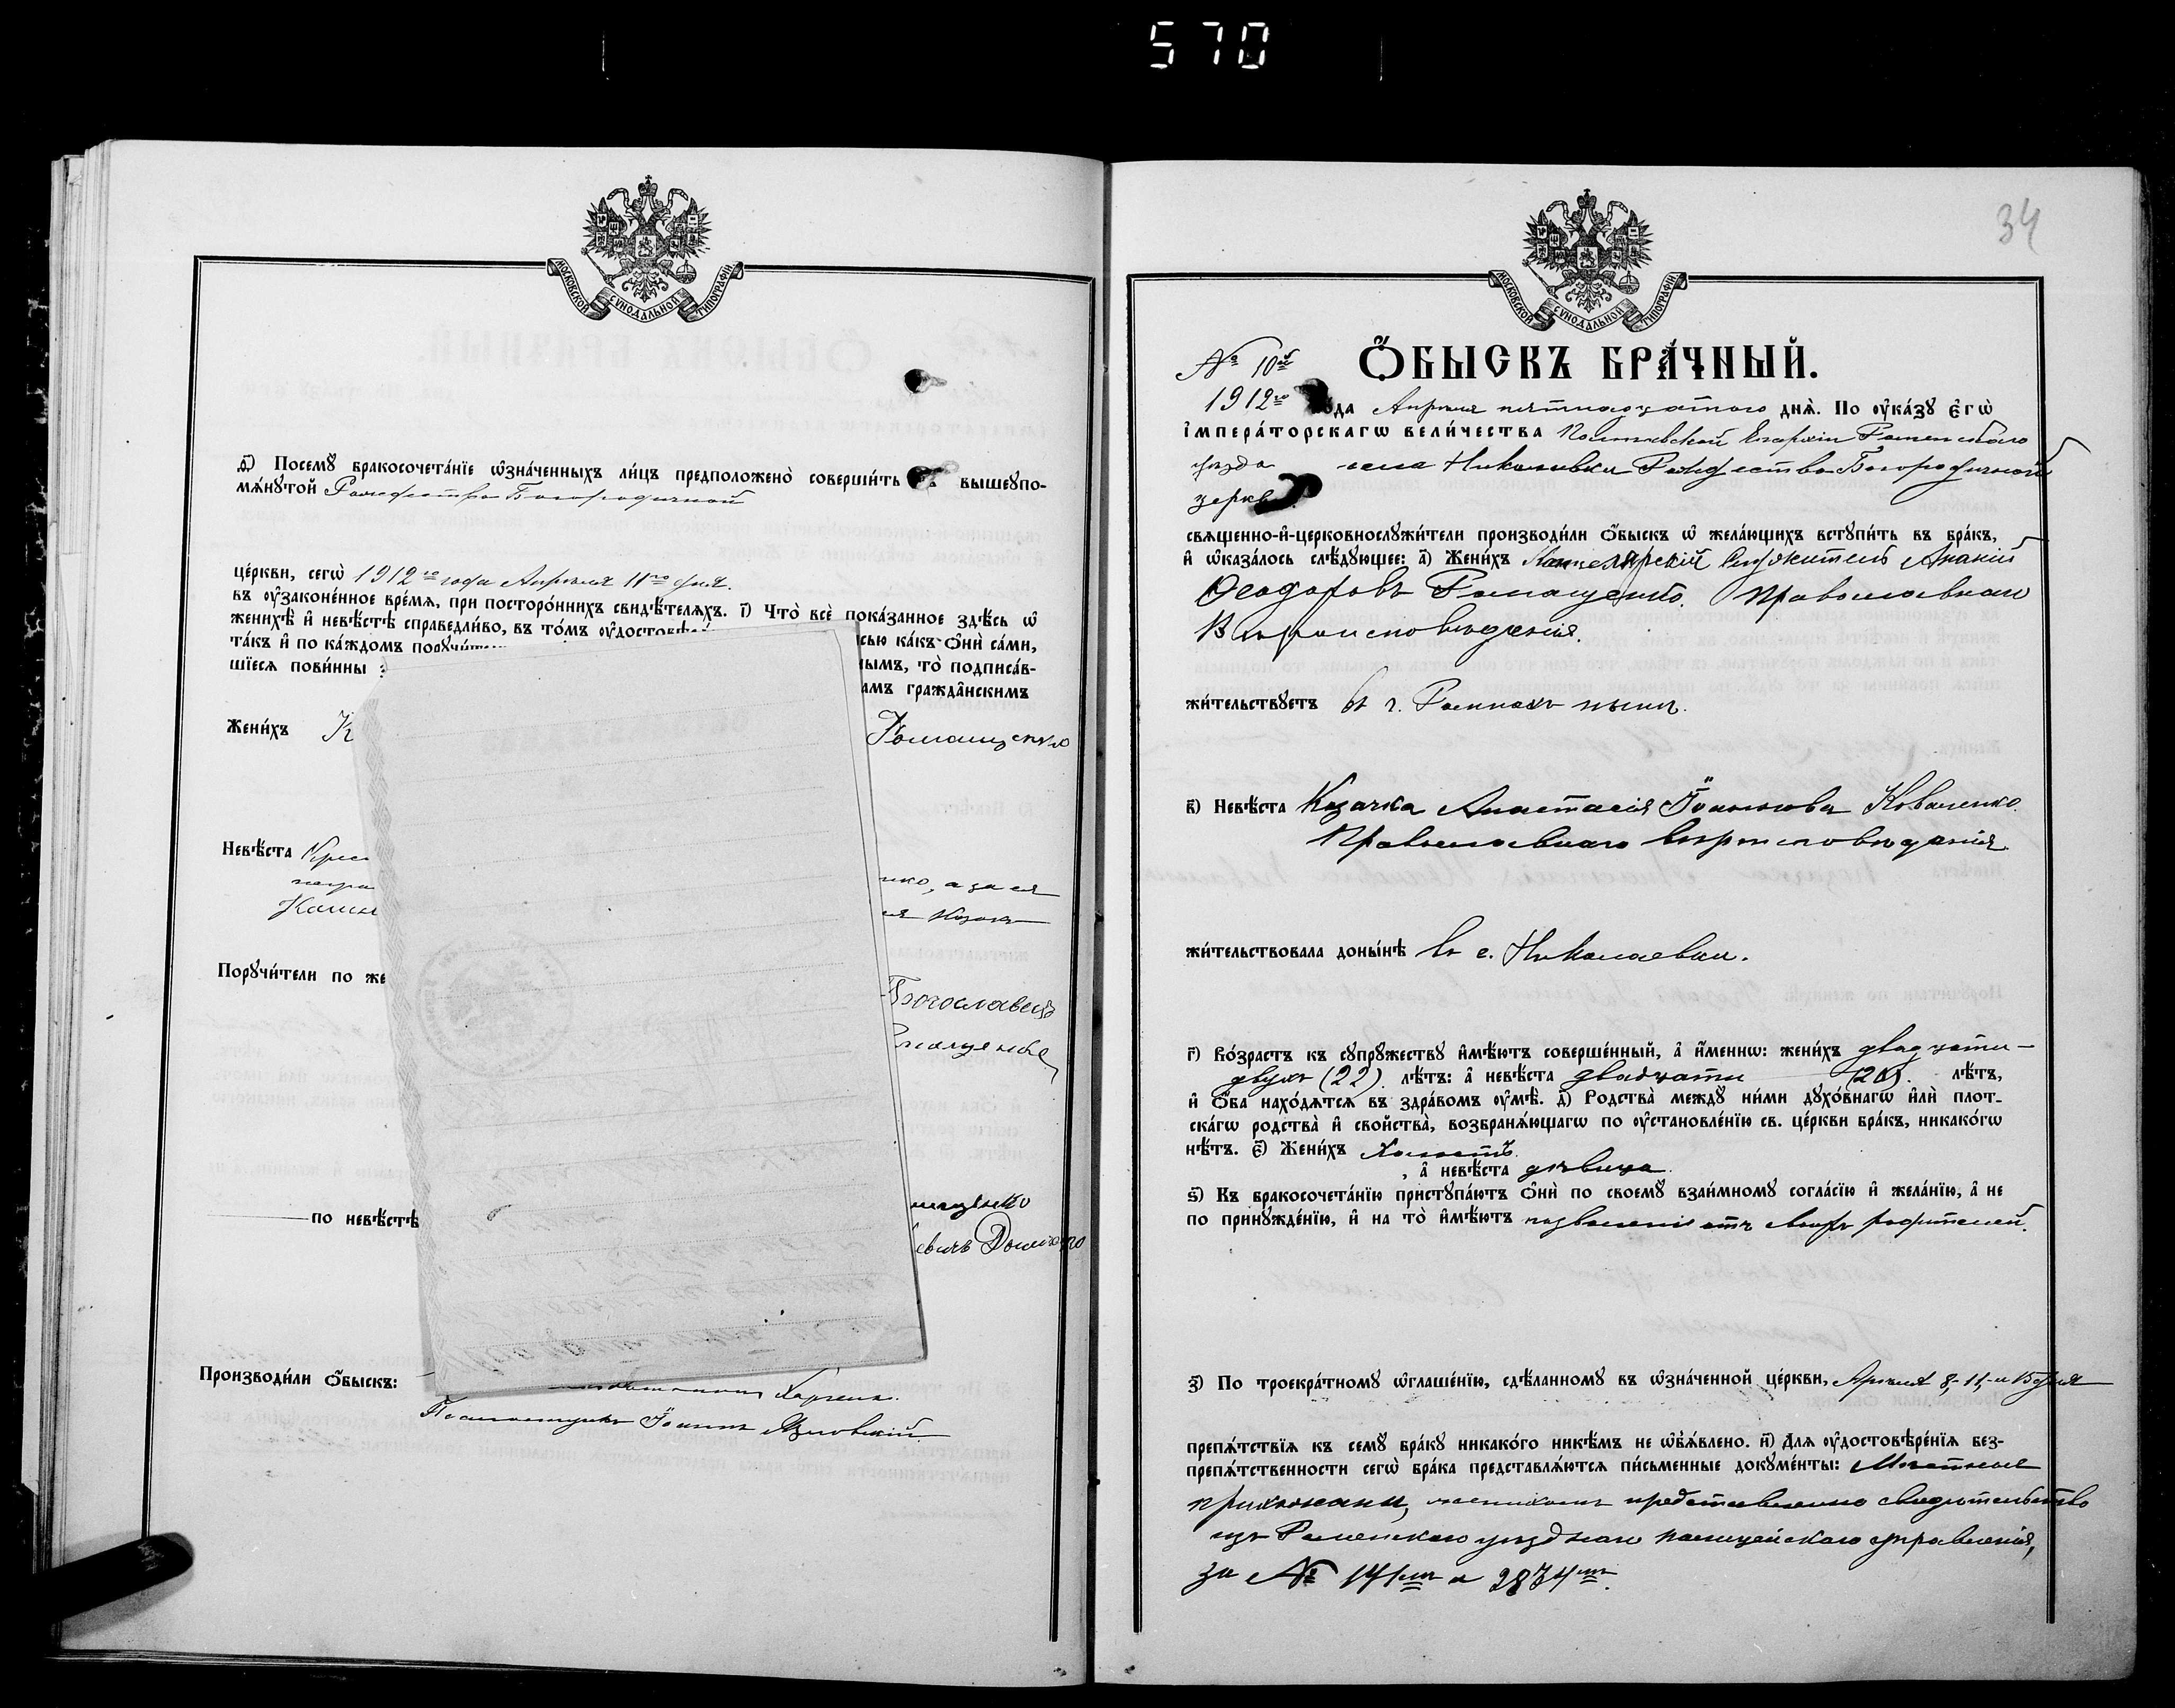 570
МОСКОВСКОЙ СУНОДАЛЬНОЙ ТИПОГРАФІИ
д҃) Посемꙋ бракосочета́нїе ѡзна́ченныхъ ли́цъ предположено̀ соверши́ть вышеꙋпо-
мѧ́нꙋтой Рождество-Богородичной
це́ркви, сегѡ̀ 1912го года Апрѣля 11го дня.
въ ᲂу҆законе́нное вре́мѧ, при посторо́ннихъ свидѣ́телѧхъ. і҃) Что̀ всѐ пока́занное здѣ́сь ѡ
женихѣ̀ и҆ невѣ́стѣ справедли́во, въ то́мъ
сью ка́къ ѻ҆нѝ са́ми,
та́къ и҆ по ка́ждомъ
нымъ, то̀ подписа́в-
шїесѧ пови́нны
амъ гражда̂нскимъ
Жени́хъ К Ромащенко
Невѣ́ста Крес
нко, а за ея
Козакъ
Порꙋчи́тели по же
Богославецъ
по невѣ́стѣ
мащенко
евичъ
Производи́ли ѻ҆́быскъ:
Псаломщикъ Іоаннъ
34
МОСКОВСКОЙ СУНОДАЛЬНОЙ ТИПОГРАФІИ
№ 10й
Ѻ҆́БЫСКЪ БРА́ЧНЫЙ.
1912го года Апрѣля пятнадцатого днѧ̀. По ᲂу҆ка́зꙋ є҆гѡ̀
і҆мпера́торскагѡ вели́чества Полтавской Епархіи Роменскаго
уѣзда села Николаевки Рождество-Богородичной
церкви
свѧщенно-и҆-церковнослꙋжи́тели производи́ли ѻ҆́быскъ ѡ҆ жела́ющихъ встꙋпи́ть въ бра́къ,
и҆ ѡ҆каза́лось слѣ́дꙋющее: а҃) Жени́хъ Канцелярскій Служитель Ананій
Ѳеодоровъ Ромащенко. Православнаго
Вѣроисповѣданія.
жи́тельствꙋетъ въ г. Ромнахъ нынѣ.
в҃) Невѣ́ста Козачка Анастасія Іоаннова Коваленко
Православнаго вѣроисповѣданія.
жи́тельствовала доны́нѣ въ с. Николаевки.
г҃) Во́зрастъ къ сꙋпрꙋ́жествꙋ и҆мѣ́ютъ соверше́нный, а҆ и҆́меннѡ: жени́хъ двадцати-
двухъ (22). лѣ́тъ: а҆ невѣ́ста двадцати (20). лѣ́тъ,
и҆ ѻ҆́ба нахо́дѧтсѧ въ здра́вомъ ᲂу҆мѣ̀. д҃) Родства̀ междꙋ̀ ни́ми дꙋхо́внагѡ и҆лѝ плот-
ска́гѡ родства̀ и҆ свойства̀, возбранѧ́ющагѡ по ᲂу҆становле́нїю св. це́ркви бра́къ, никако́гѡ
нѣ́тъ. є҃) Жени́хъ Холостъ
, а҆ невѣ́ста дѣвица.
ѕ҃) Къ бракосочета́нїю пристꙋпа́ютъ ѻ҆нѝ по своемꙋ̀ взаи́мномꙋ согла́сїю и҆ жела́нїю, а҆ не
по принꙋжде́нїю, и҆ на то̀ и҆мѣ́ютъ позволеніе отъ своихъ родителей.
з҃) По троекра́тномꙋ ѡ҆глаше́нїю, сдѣ́ланномꙋ въ ѡ҆зна́ченной це́ркви, Апрѣля 8,- 11,- и 15 дня
препѧ́тствїѧ къ семꙋ̀ бра́кꙋ никако́го никѣ́мъ не ѡ҆б̾ѧ́влено. и҃) Длѧ ᲂу҆достовѣре́нїѧ без-
препѧ́тственности сегѡ̀ бра́ка представлѧ́ютсѧ пи́сьменные докꙋме́нты: Мѣстные
прихожани, женихомъ представлено свидѣтельство
изъ Роменскаго уѣзднаго полицейскаго управленія,
за № 141мъ и 2834мъ.